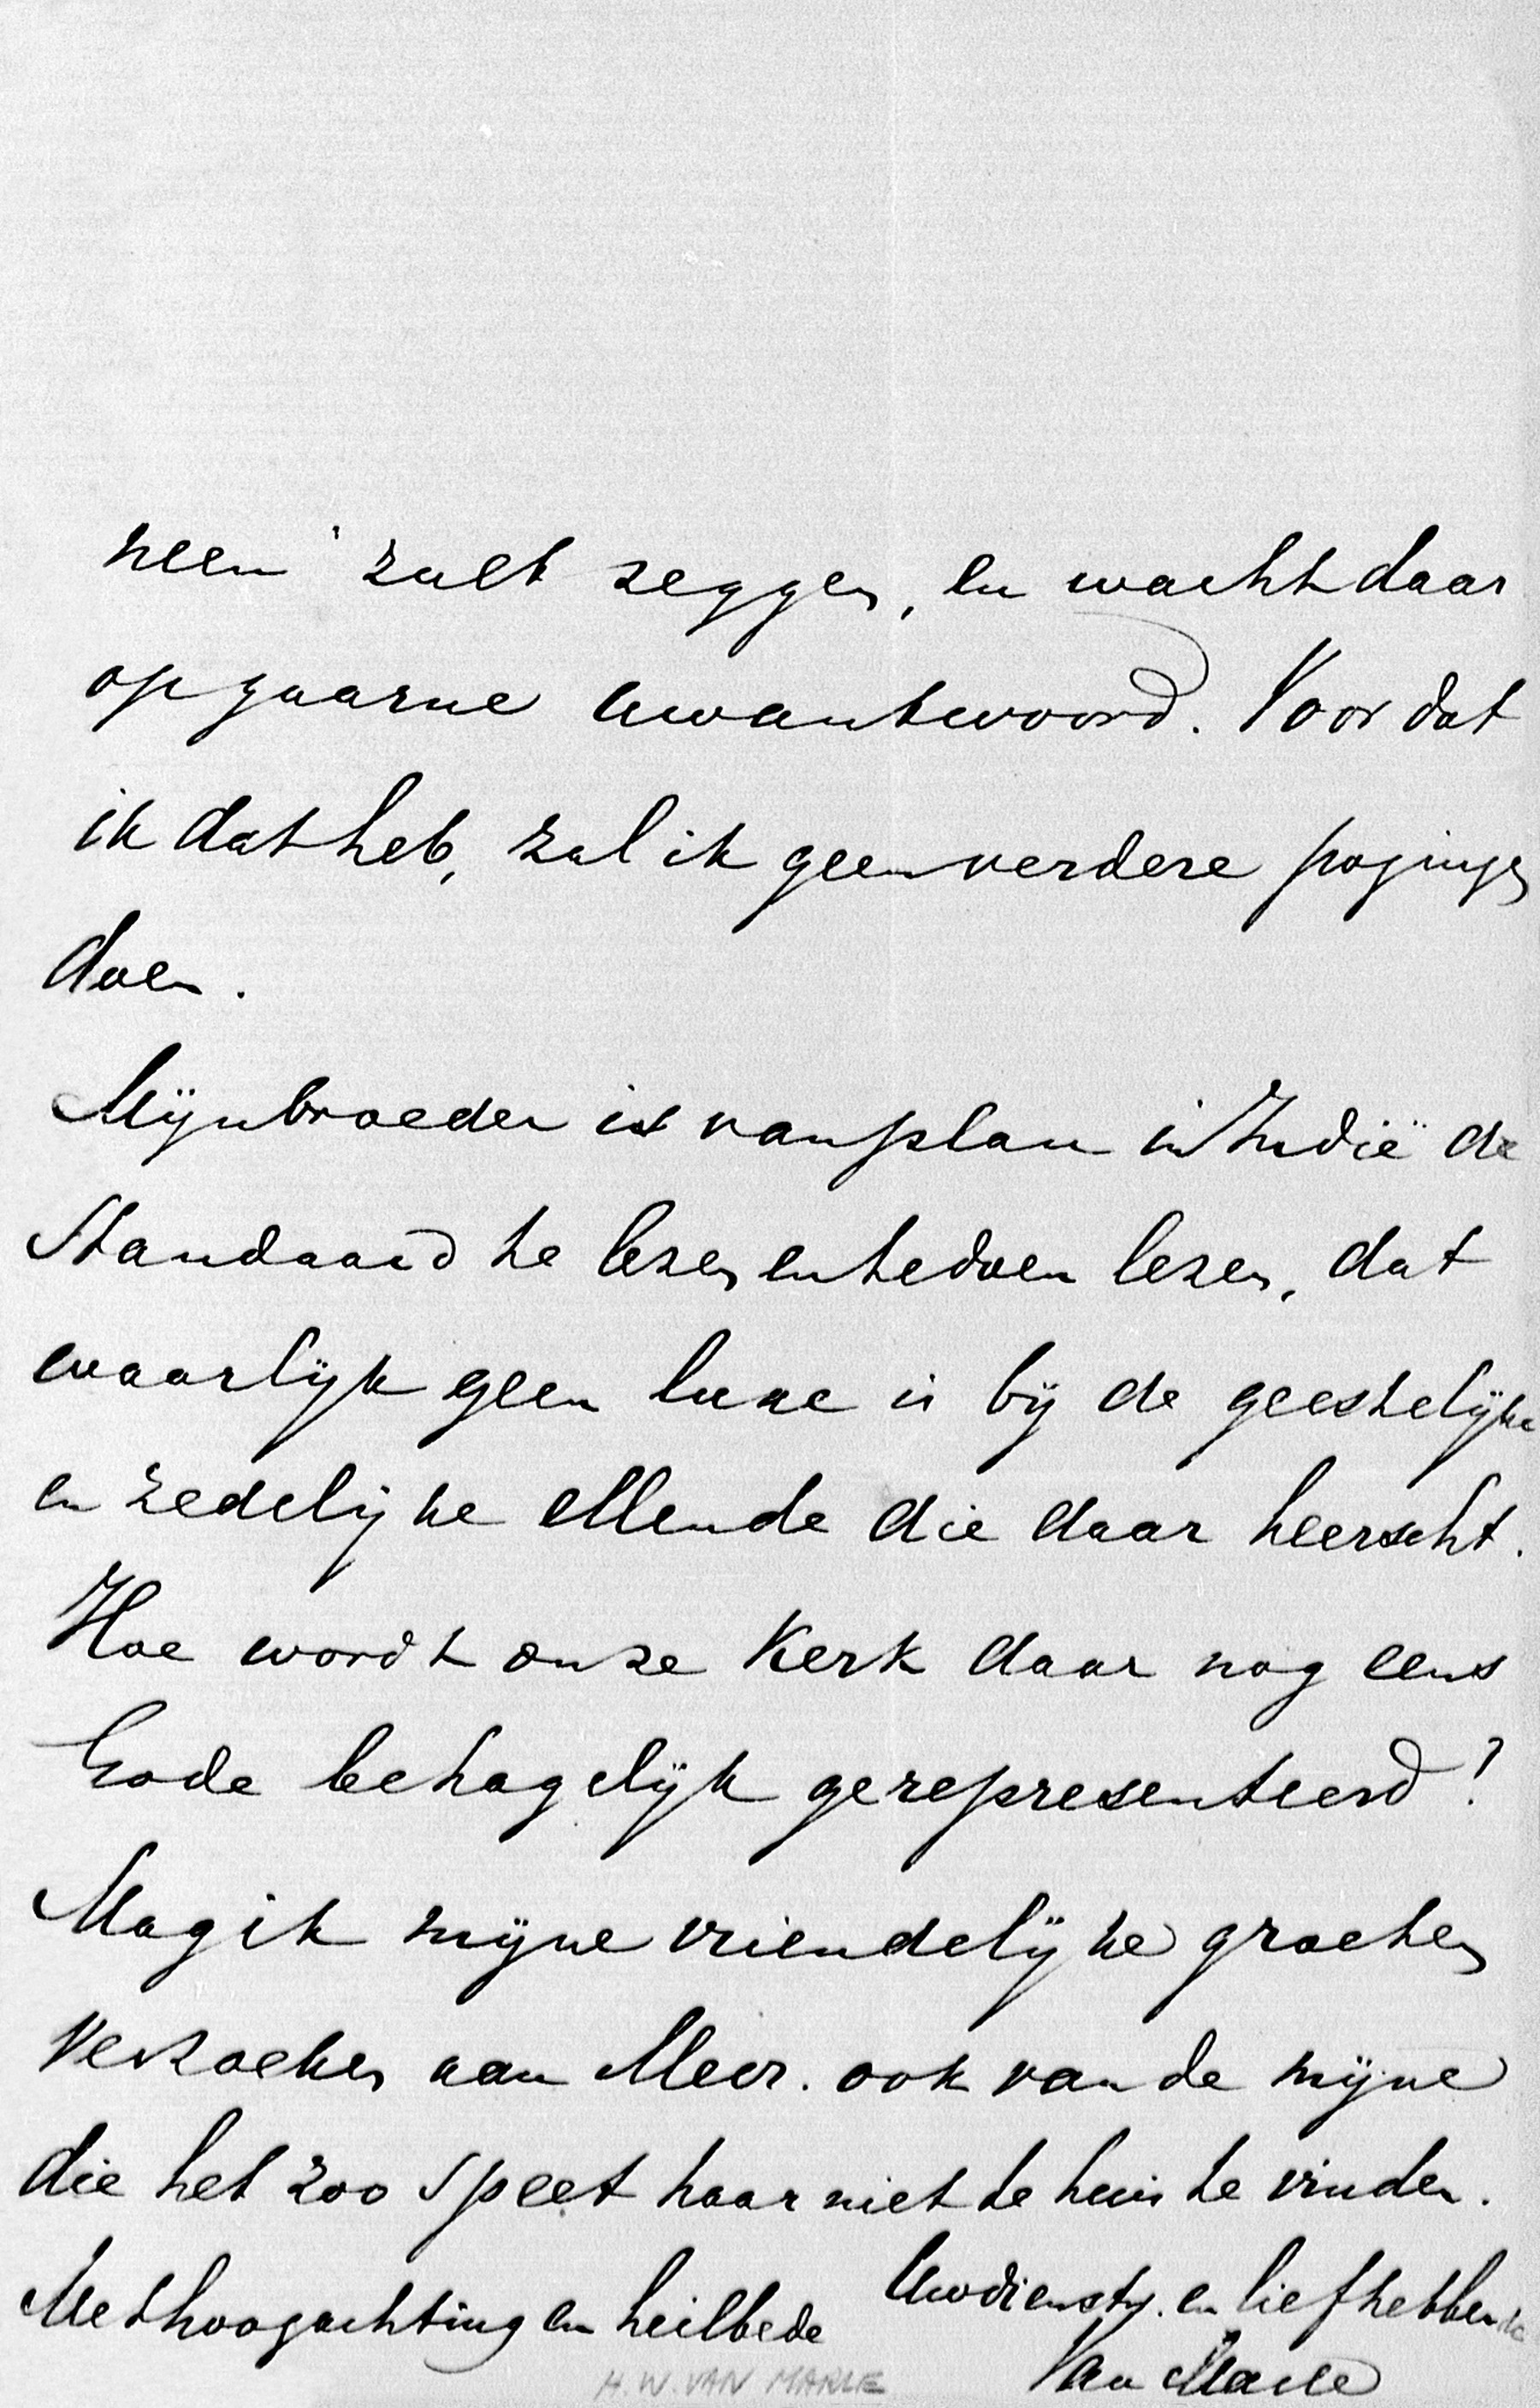 neen' zult zeggen, en wacht daar
op gaarne uw antwoord. Voor dat
ik dat heb, zal ik geen verdere pogingen
doen.
Mijn broeder is van plan in Indië de
Standaard te lezen en te doen lezen, dat
waarlijk geen luxe is bij de geestelijke
en zedelijke ellende die daar heerscht.
Hoe wordt onze Kerk daar nog eens
Gode behagelijk gerepresenteerd?
Mag ik mijne vriendelijke groeten
verzoeken aan Mevr. ook van de mijne
die het zoo speet haar niet te huis te vinden.
Met hoogachting en heilbede
Uw dienstv. en liefhebbende
Van Marle
H. W. VAN MARLE